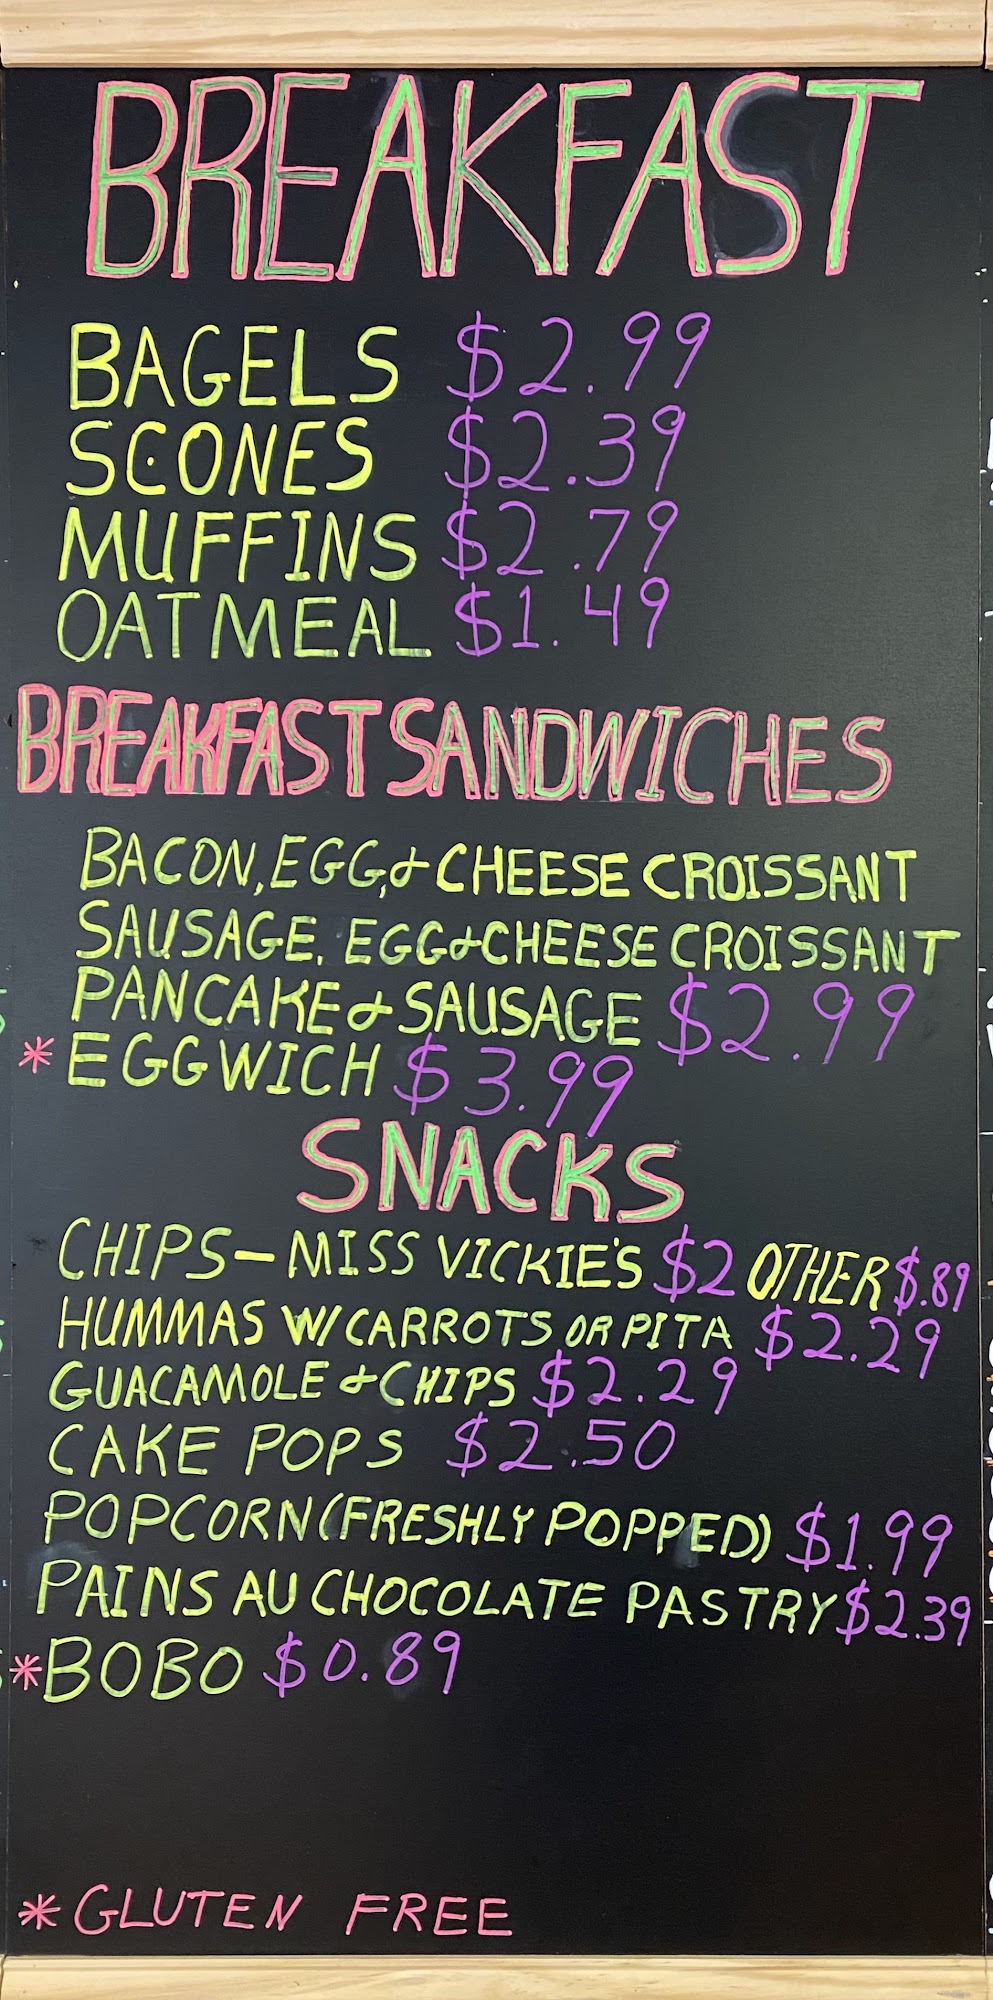 BREAKFAST
BAGELS $2.99
SCONES $2.39
MUFFINS $2.79
OATMEAL $1.49
BREAKFAST SANDWICHES
BACON, EGG, & CHEESE CROISSANT
SAUSAGE, EGG & CHEESE CROISSANT
PANCAKE & SAUSAGE $2.99
* EGGWICH $3.99
SNACKS
CHIPS - MISS VICKIE'S $2 OTHER $.89
HUMMAS W/ CARROTS OR PITA $2.29
GUACAMOLE & CHIPS $2.29
CAKE POPS $2.50
POPCORN (FRESHLY POPPED) $1.99
PAINS AU CHOCOLATE PASTRY $2.39
* BOBO $0.89
* GLUTEN FREE